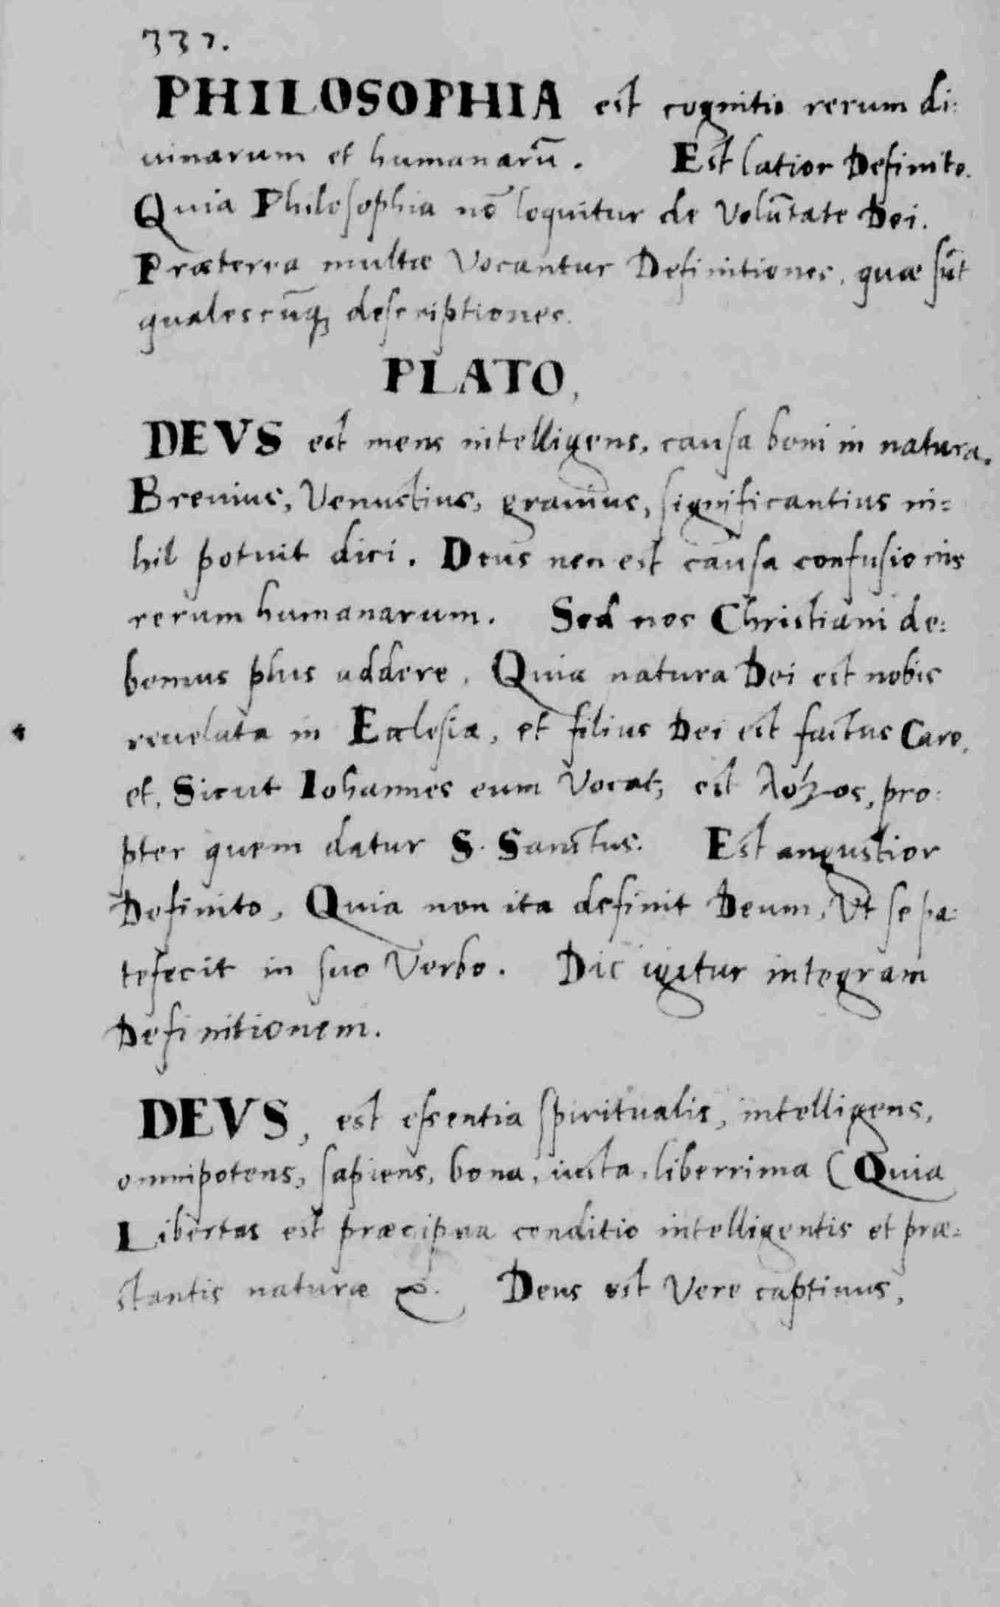 337.
PHILOSOPHIA est cognitio rerum di:
uinarum et humanarū. Est latior Definito.
Quia Philosophia nō loquitur de Volūtate Dei.
Præterea multæ Vocantur Definitiones, quæ sūt
qualescūqȝ descriptiones.
PLATO,
DEVS est mens intelligens, causa boni in natura.
Breuius, Venustius, grauius, significantius ni=
hil potuit dici. Deus non est causa confusionis
rerum humanarum. Sed nos Christiani de:
bemus plus addere. Quia natura Dei est nobis
reuelata in Ecclesia, et filius Dei est factus Caro,
et, Sicut Iohannes eum Vocat, est λόγος, pro:
pter quem datur S. Sanctus. Est angustior
Definito, Quia non ita definit Deum, Vt se pa:
tefecit in suo Verbo. Dic igitur integram
Definitionem.
DEVS, est essentia spiritualis, intelligens,
omnipotens, sapiens, bona, iusta, liberrima (Quia
Libertas est præcipua conditio intelligentis et præ=
stantis naturæ Deus est Vere captiuus,